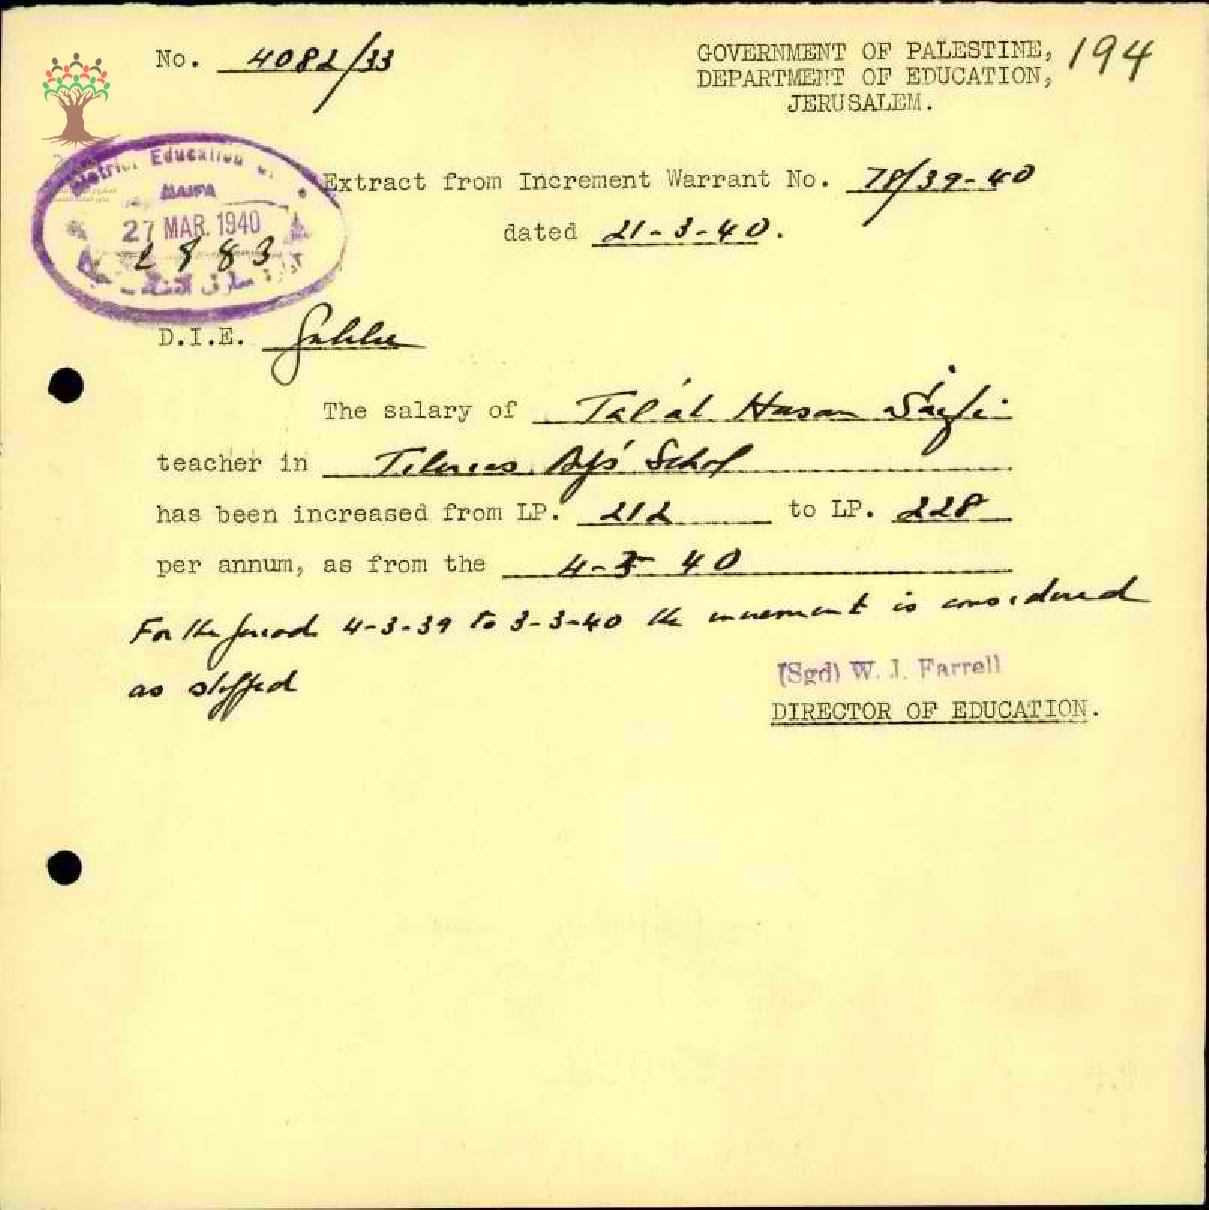 No. 4082/33
GOVERNMENT OF PALESTINE, 194
DEPARTMENT OF EDUCATION,
JERUSALEM.
District Education
HAIFA
27 MAR. 1940
2883
Extract from Increment Warrant No. 78/39-40
dated 21-3-40.
D.I.E. Galilee
The salary of Tal'at Hasan
teacher in Tiberias Bys' School
has been increased from LP. 212 to LP. 228
per annum, as from the 4-3-40
For the period 4-3-39 to 3-3-40 the increment is considered
as stopped
(Sgd) W. J. Farrell
DIRECTOR OF EDUCATION.